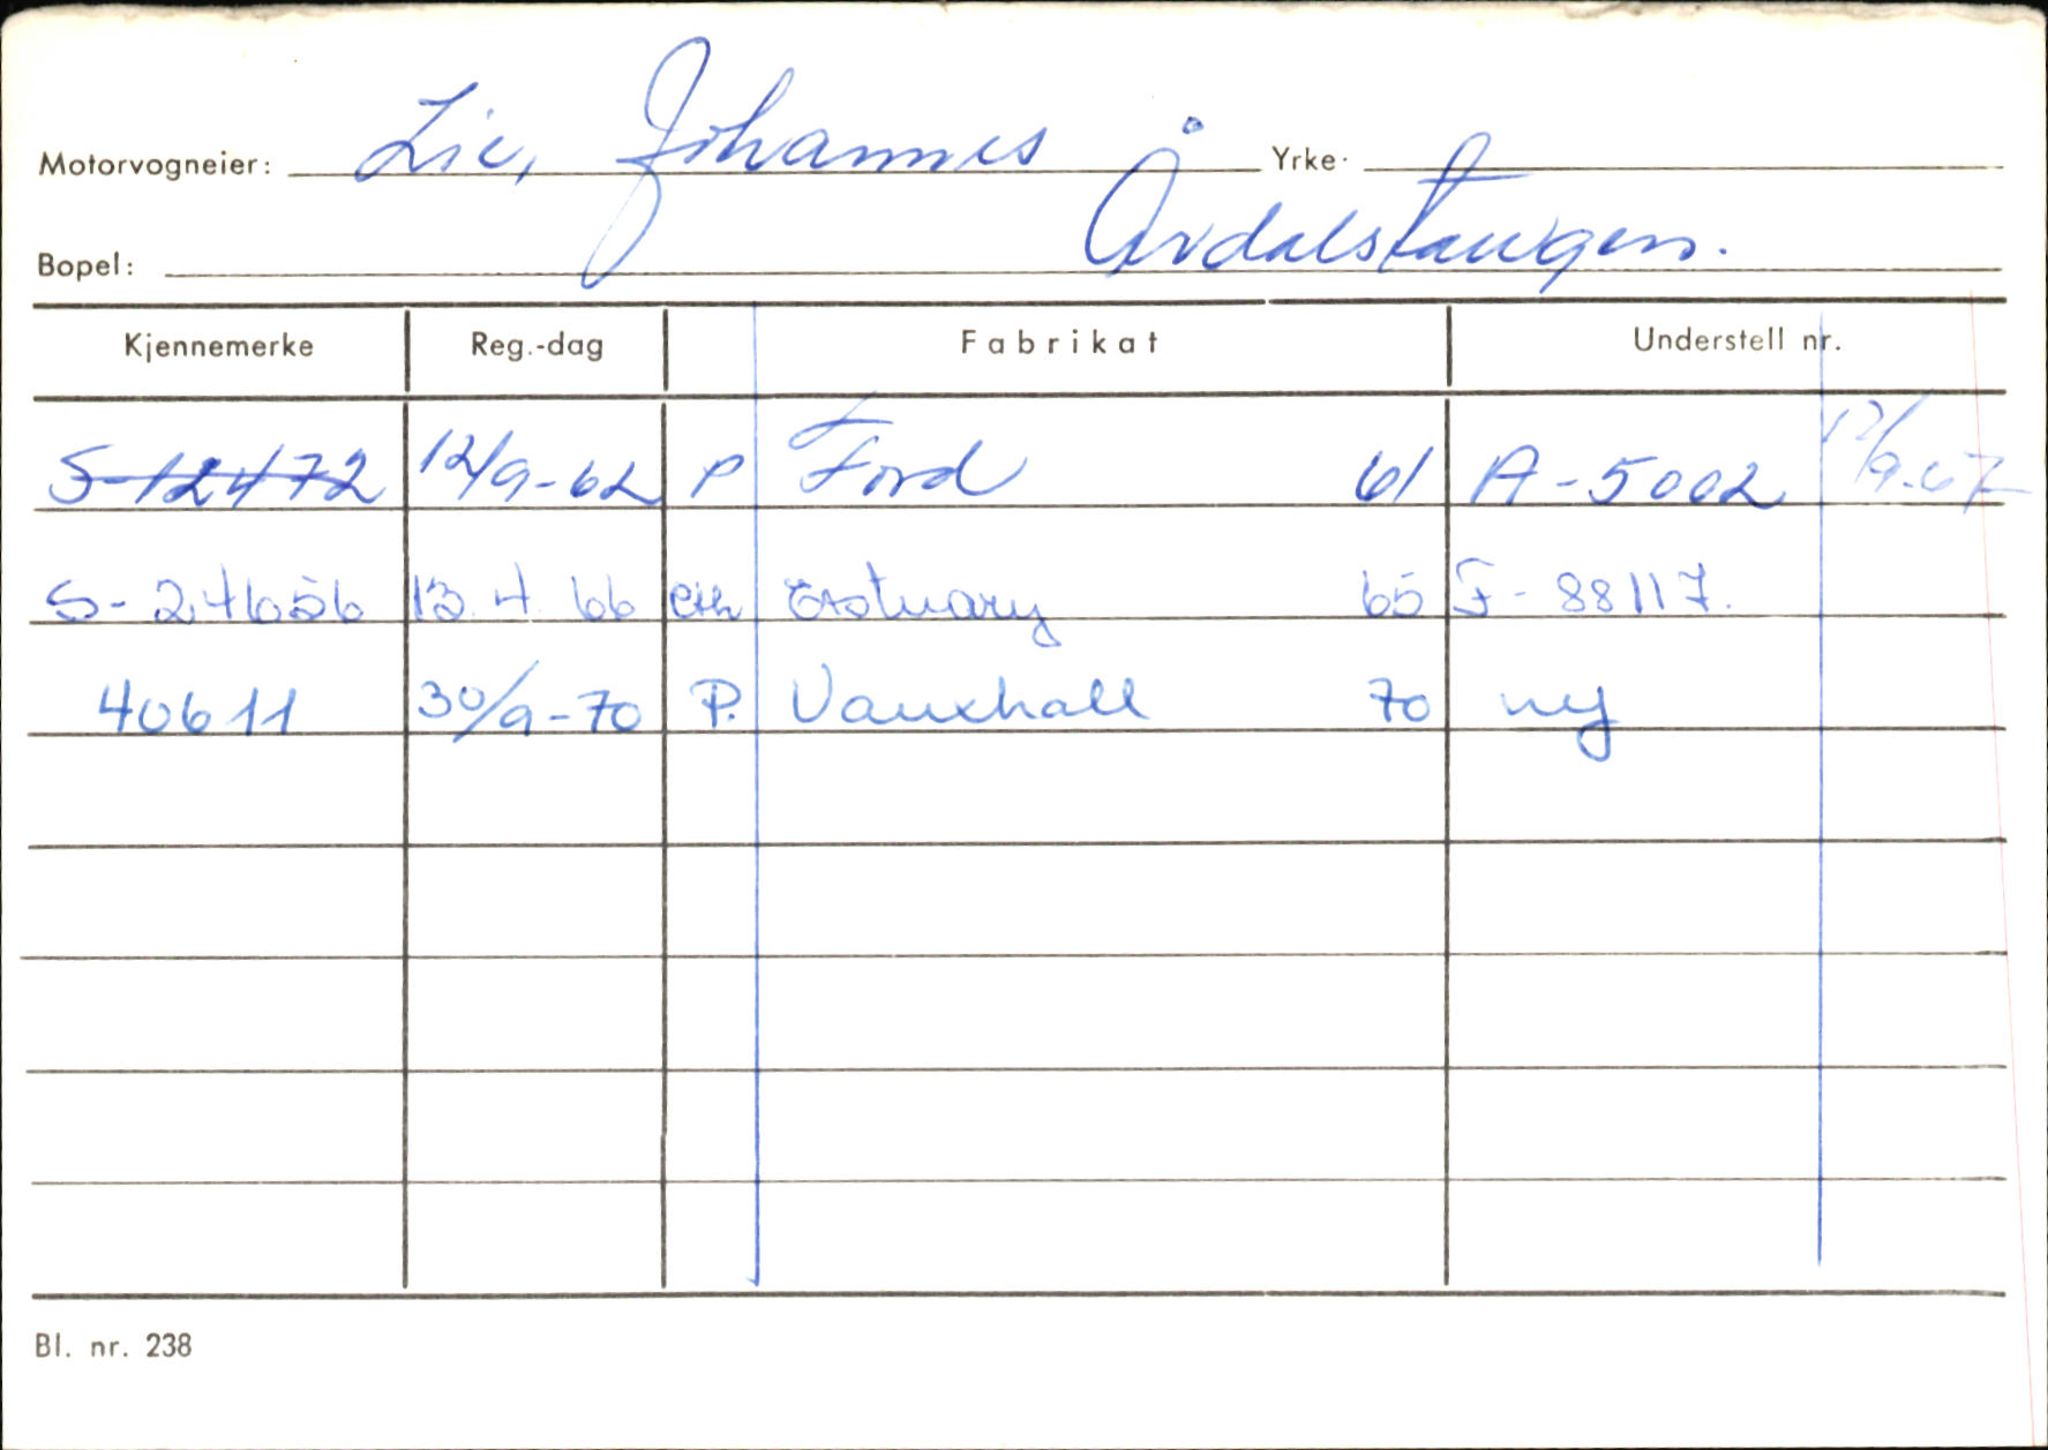 Motorvogneier: Lie, Johannes Yrke:
Bopel: Årdalstangen.
Kjennemerke Reg.-dag Fabrikat Understell nr.
S-12472 12/9-62 P Ford 61 A-5002 12/9-67
S-24656 13.4.66 eth Estuary 65 F-88117.
40611 30/9-70 P. Vauxhall 70 ny
Bl. nr. 238